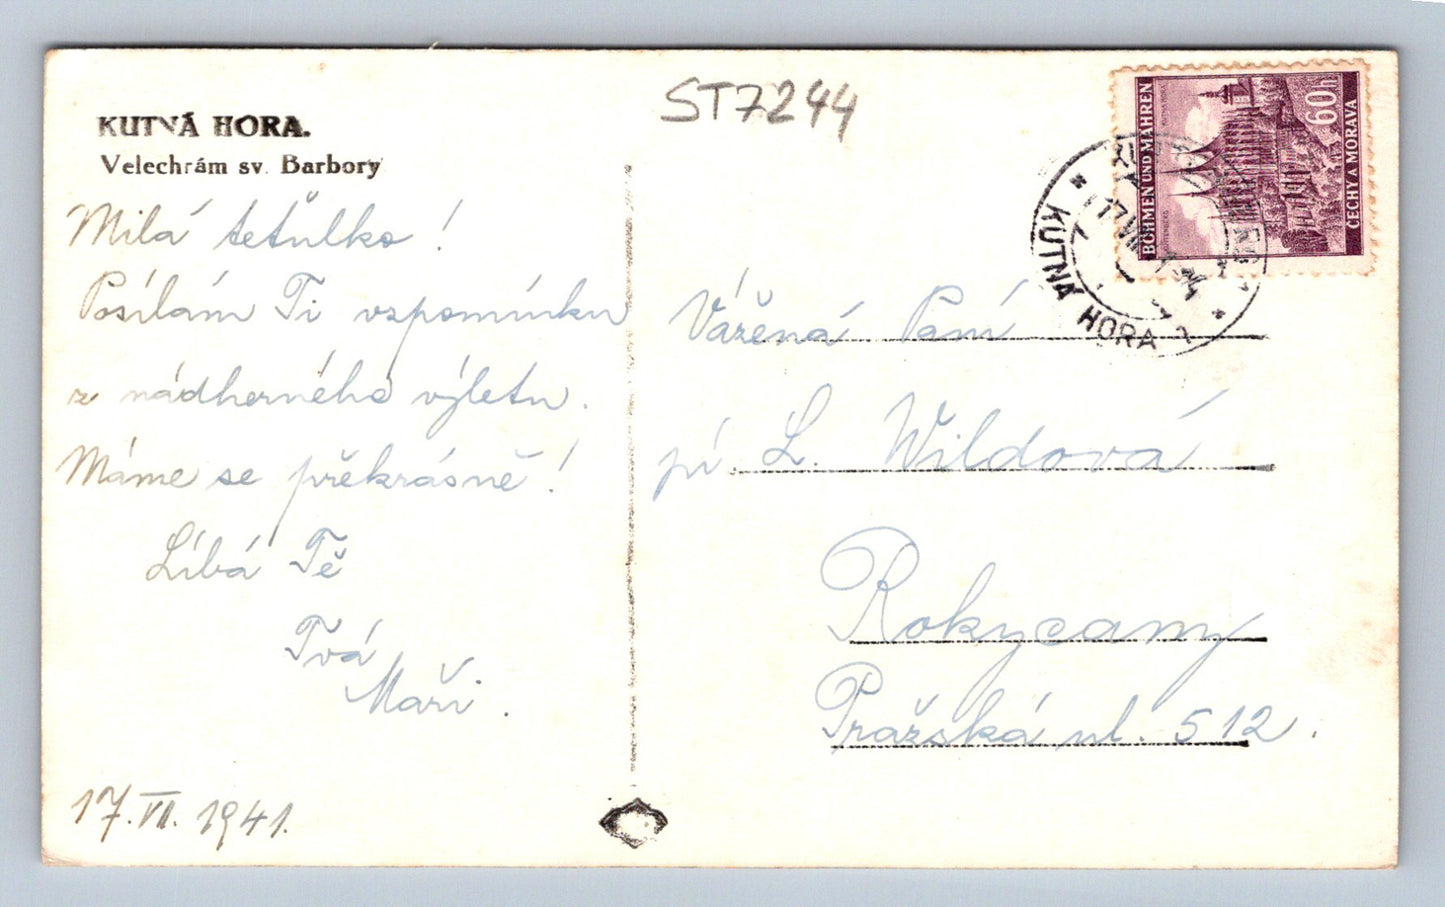 KUTNÁ HORA.
Velechrám sv. Barbory
ST7244
Milá tetulko!
Posílám Ti vzpomínku
z nádherného výletu.
Máme se překrásně!
Líbá Tě
Tvá
Maři.
17. VII. 1941.
BÖHMEN UND MÄHREN
60h
ČECHY A MORAVA
KUTNÁ HORA 1
17 VII
Vážená Paní
pí L. Wildová
Rokycany
Pražská ul. 512.